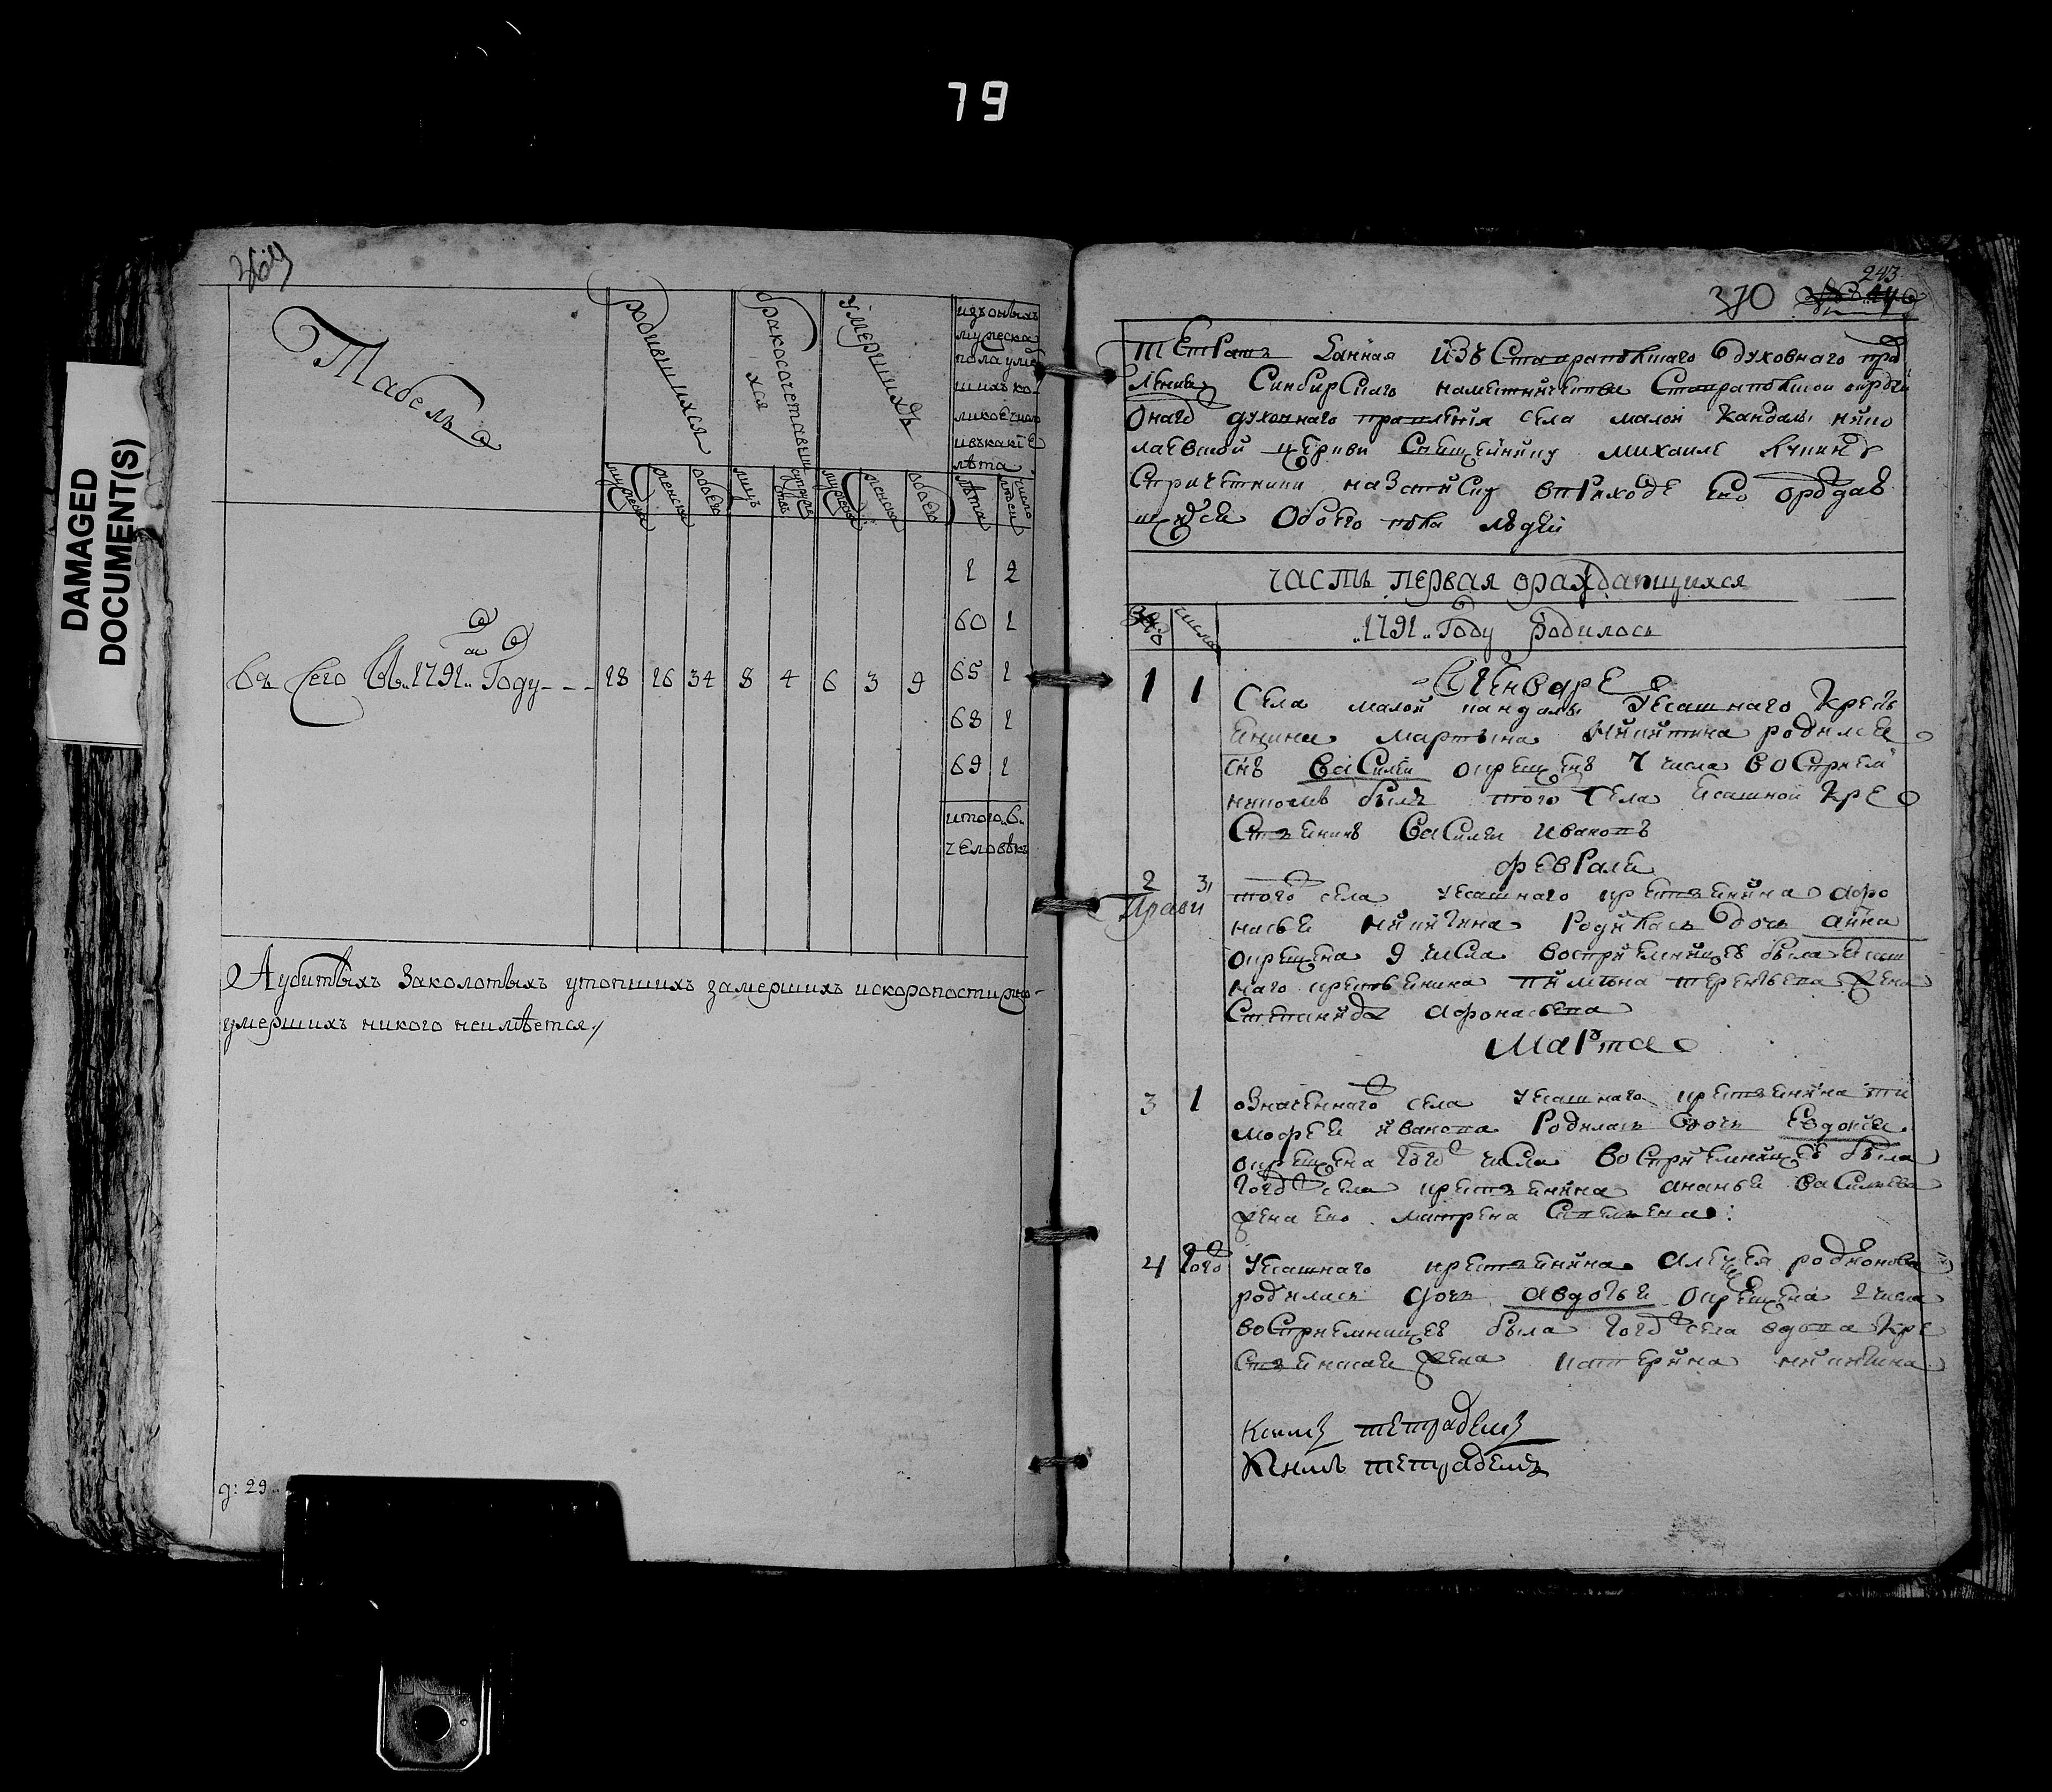 79
DAMAGED
DOCUMENT(S)
Табель
родившихся
бракосочетавши
хся
умершихъ
изъ оныхъ
мужеска
пола уме
шихъ ко-
ликое число
ивъ какiе
лѣта
мужеска
женска
обоего
лицъ
супруже
ствъ
мужеска
женска
обоего
лѣта
число
людей
1 2
60 1
въ сего въ 1791 Году - - - 18 16 34 8 4 6 3 9 65 1
68 1
69 1
итого 6
человѣкъ
Аубитыхъ заколотыхъ утопшихъ замершихъ искоропостижно
умершихъ никого неимѣется
д: 29
243
370
тетрать данная изъ Ставропольшаго духовного пра
вленiя Синбирскаго наместничества Ставропольшой округи
онаго духовнаго правленiя села малой кандалы нико
лаевской церкви Священнику михаиле
Спричетники назаписку вприходе ево оражда
обоего пола людей
часть первая ораждающихся
числа
1791 Году родилось
Генваре
1 1 Села малой кандалы Ясашнаго Кресть
янина мартына никитина родился
снъ василеи окрещенъ 7 числа восприем
никомъ былъ того села ясашной Кре
стьянинъ василеи ивановъ
февраля
2 3 того села Ясашнаго крестьянина афо
насья никитина родилась дочь анна
окрещена 9 числа восприемницеѣ была ясаш
наго крестьянина пимина терентьева жена
Степанида афонасьева
Марта
3 1 означеннаго села Ясашнаго крестьянина ти
мофея иванова родилась дочь Евдокея
окрещена того числа восприемницеѣ была
того села крестьянина ананья василева
жена ево матрена Савельева:
4 того Ясашнаго крестьянина алексея родионова
родилась дочь авдотья окрещена 2 числа
восприемницеѣ была того села вдова Кре
стьянская жена катерина никитина